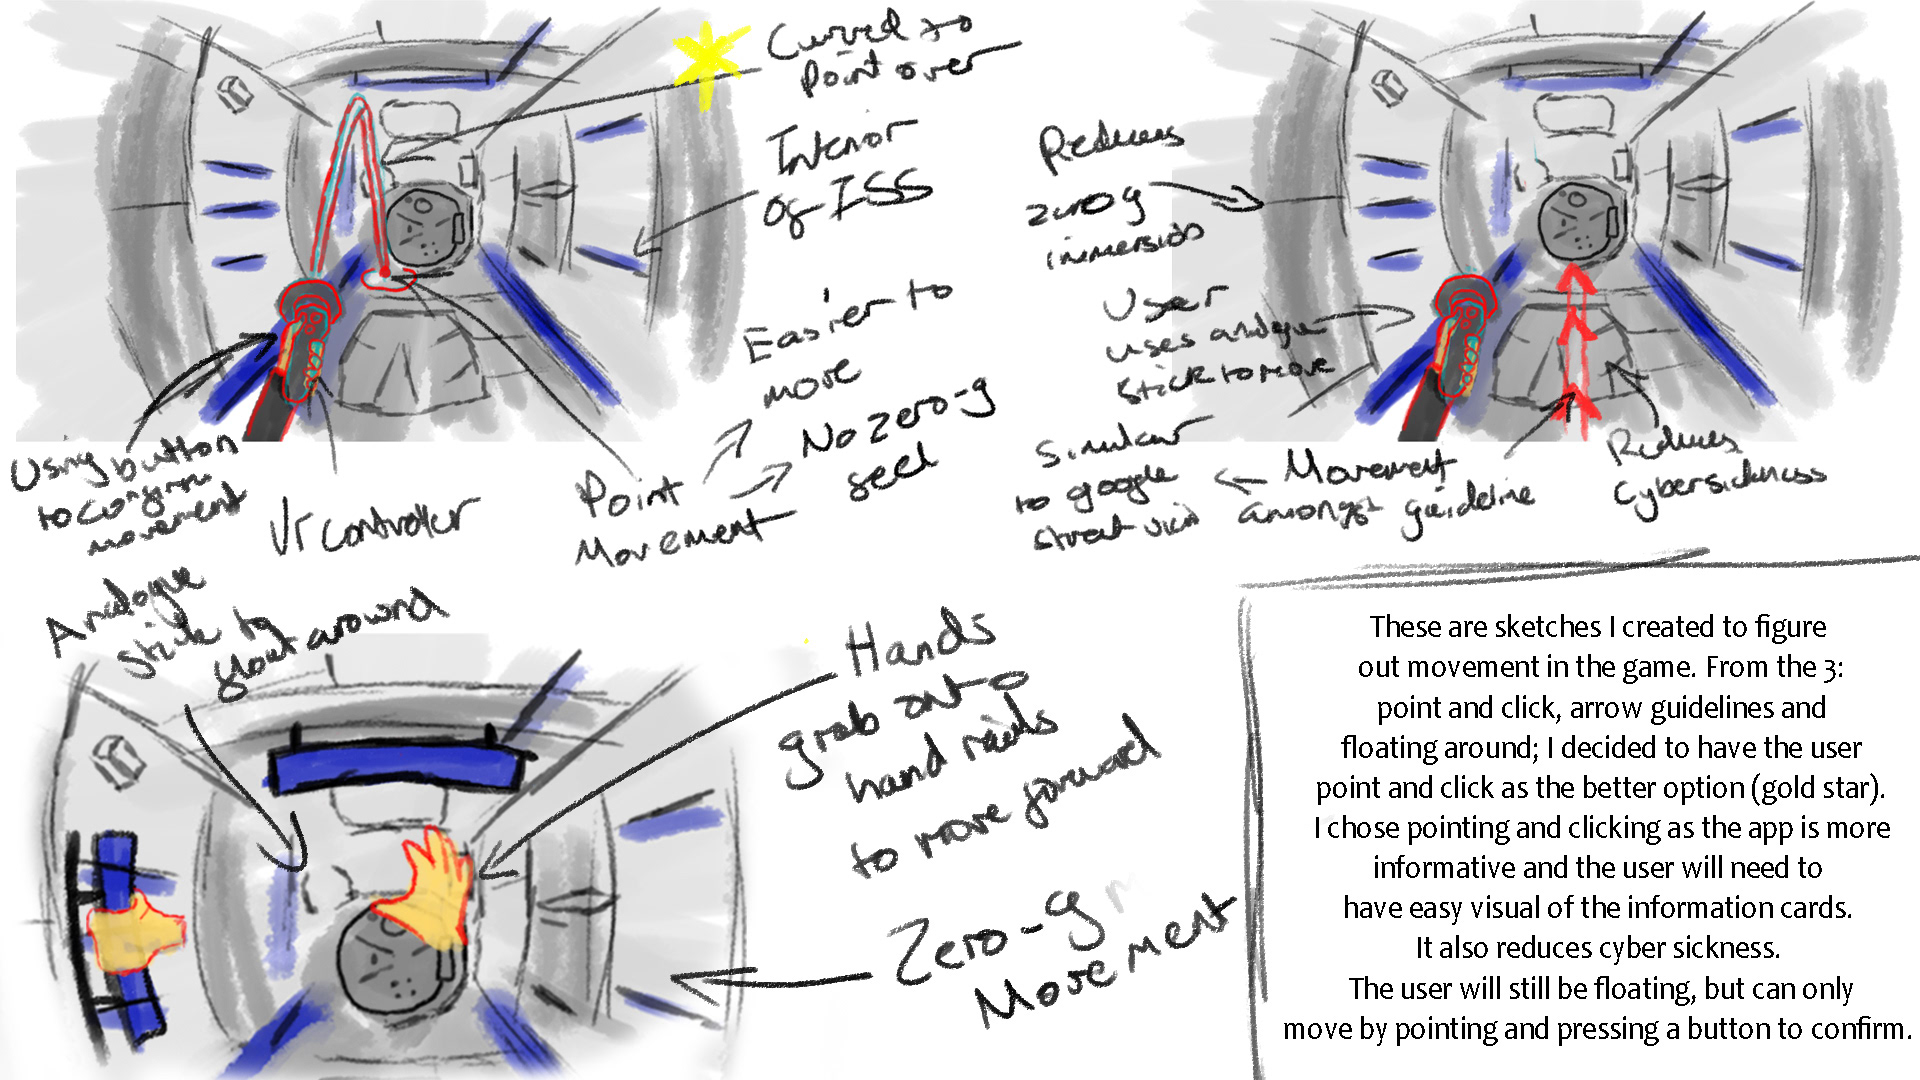 Curved to
Point over
Interior
of ISS
Easier to
move
No zero-g
feel
Point
Movement
Using button
to confirm
movement
Vr controller
Reduces
zero g
immersion
User
uses analogue
stick to move
Similar
to google
street view
Movement
amongst guideline
Reduces
Cybersickness
Analogue
stick to
float around
Hands
grab onto
hand rails
to move forward
Zero-g
Movement
These are sketches I created to figure
out movement in the game. From the 3:
point and click, arrow guidelines and
floating around; I decided to have the user
point and click as the better option (gold star).
I chose pointing and clicking as the app is more
informative and the user will need to
have easy visual of the information cards.
It also reduces cyber sickness.
The user will still be floating, but can only
move by pointing and pressing a button to confirm.